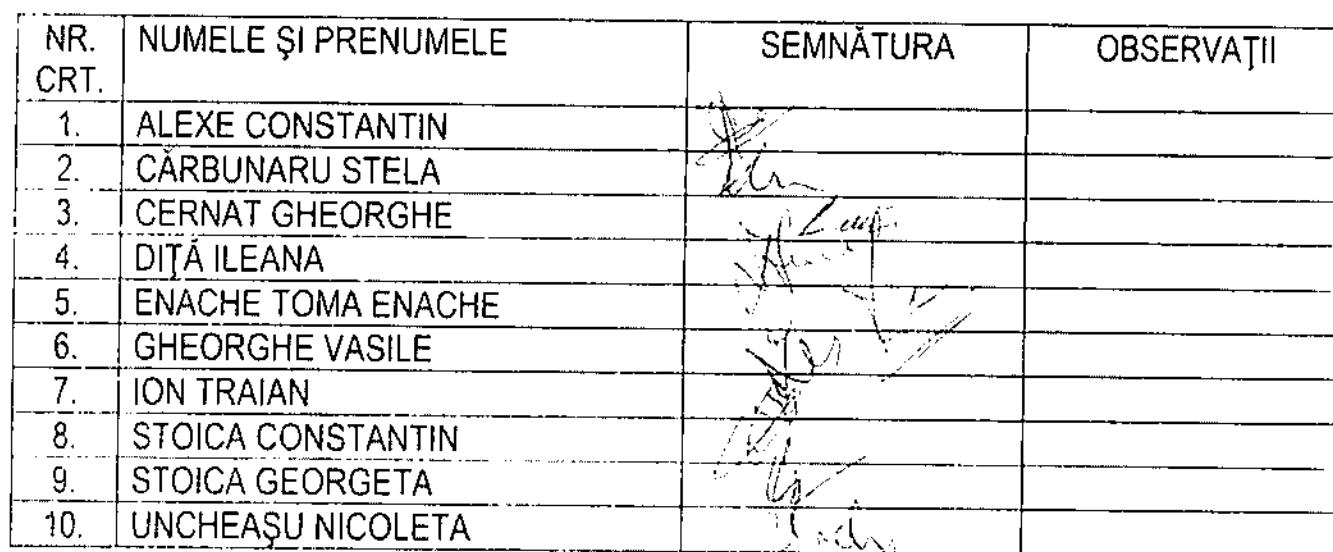 NR. CRT. NUMELE ŞI PRENUMELE SEMNĂTURA OBSERVAŢII
1. ALEXE CONSTANTIN
2. CĂRBUNARU STELA
3. CERNAT GHEORGHE
4. DIŢĂ ILEANA
5. ENACHE TOMA ENACHE
6. GHEORGHE VASILE
7. ION TRAIAN
8. STOICA CONSTANTIN
9. STOICA GEORGETA
10. UNCHEAŞU NICOLETA